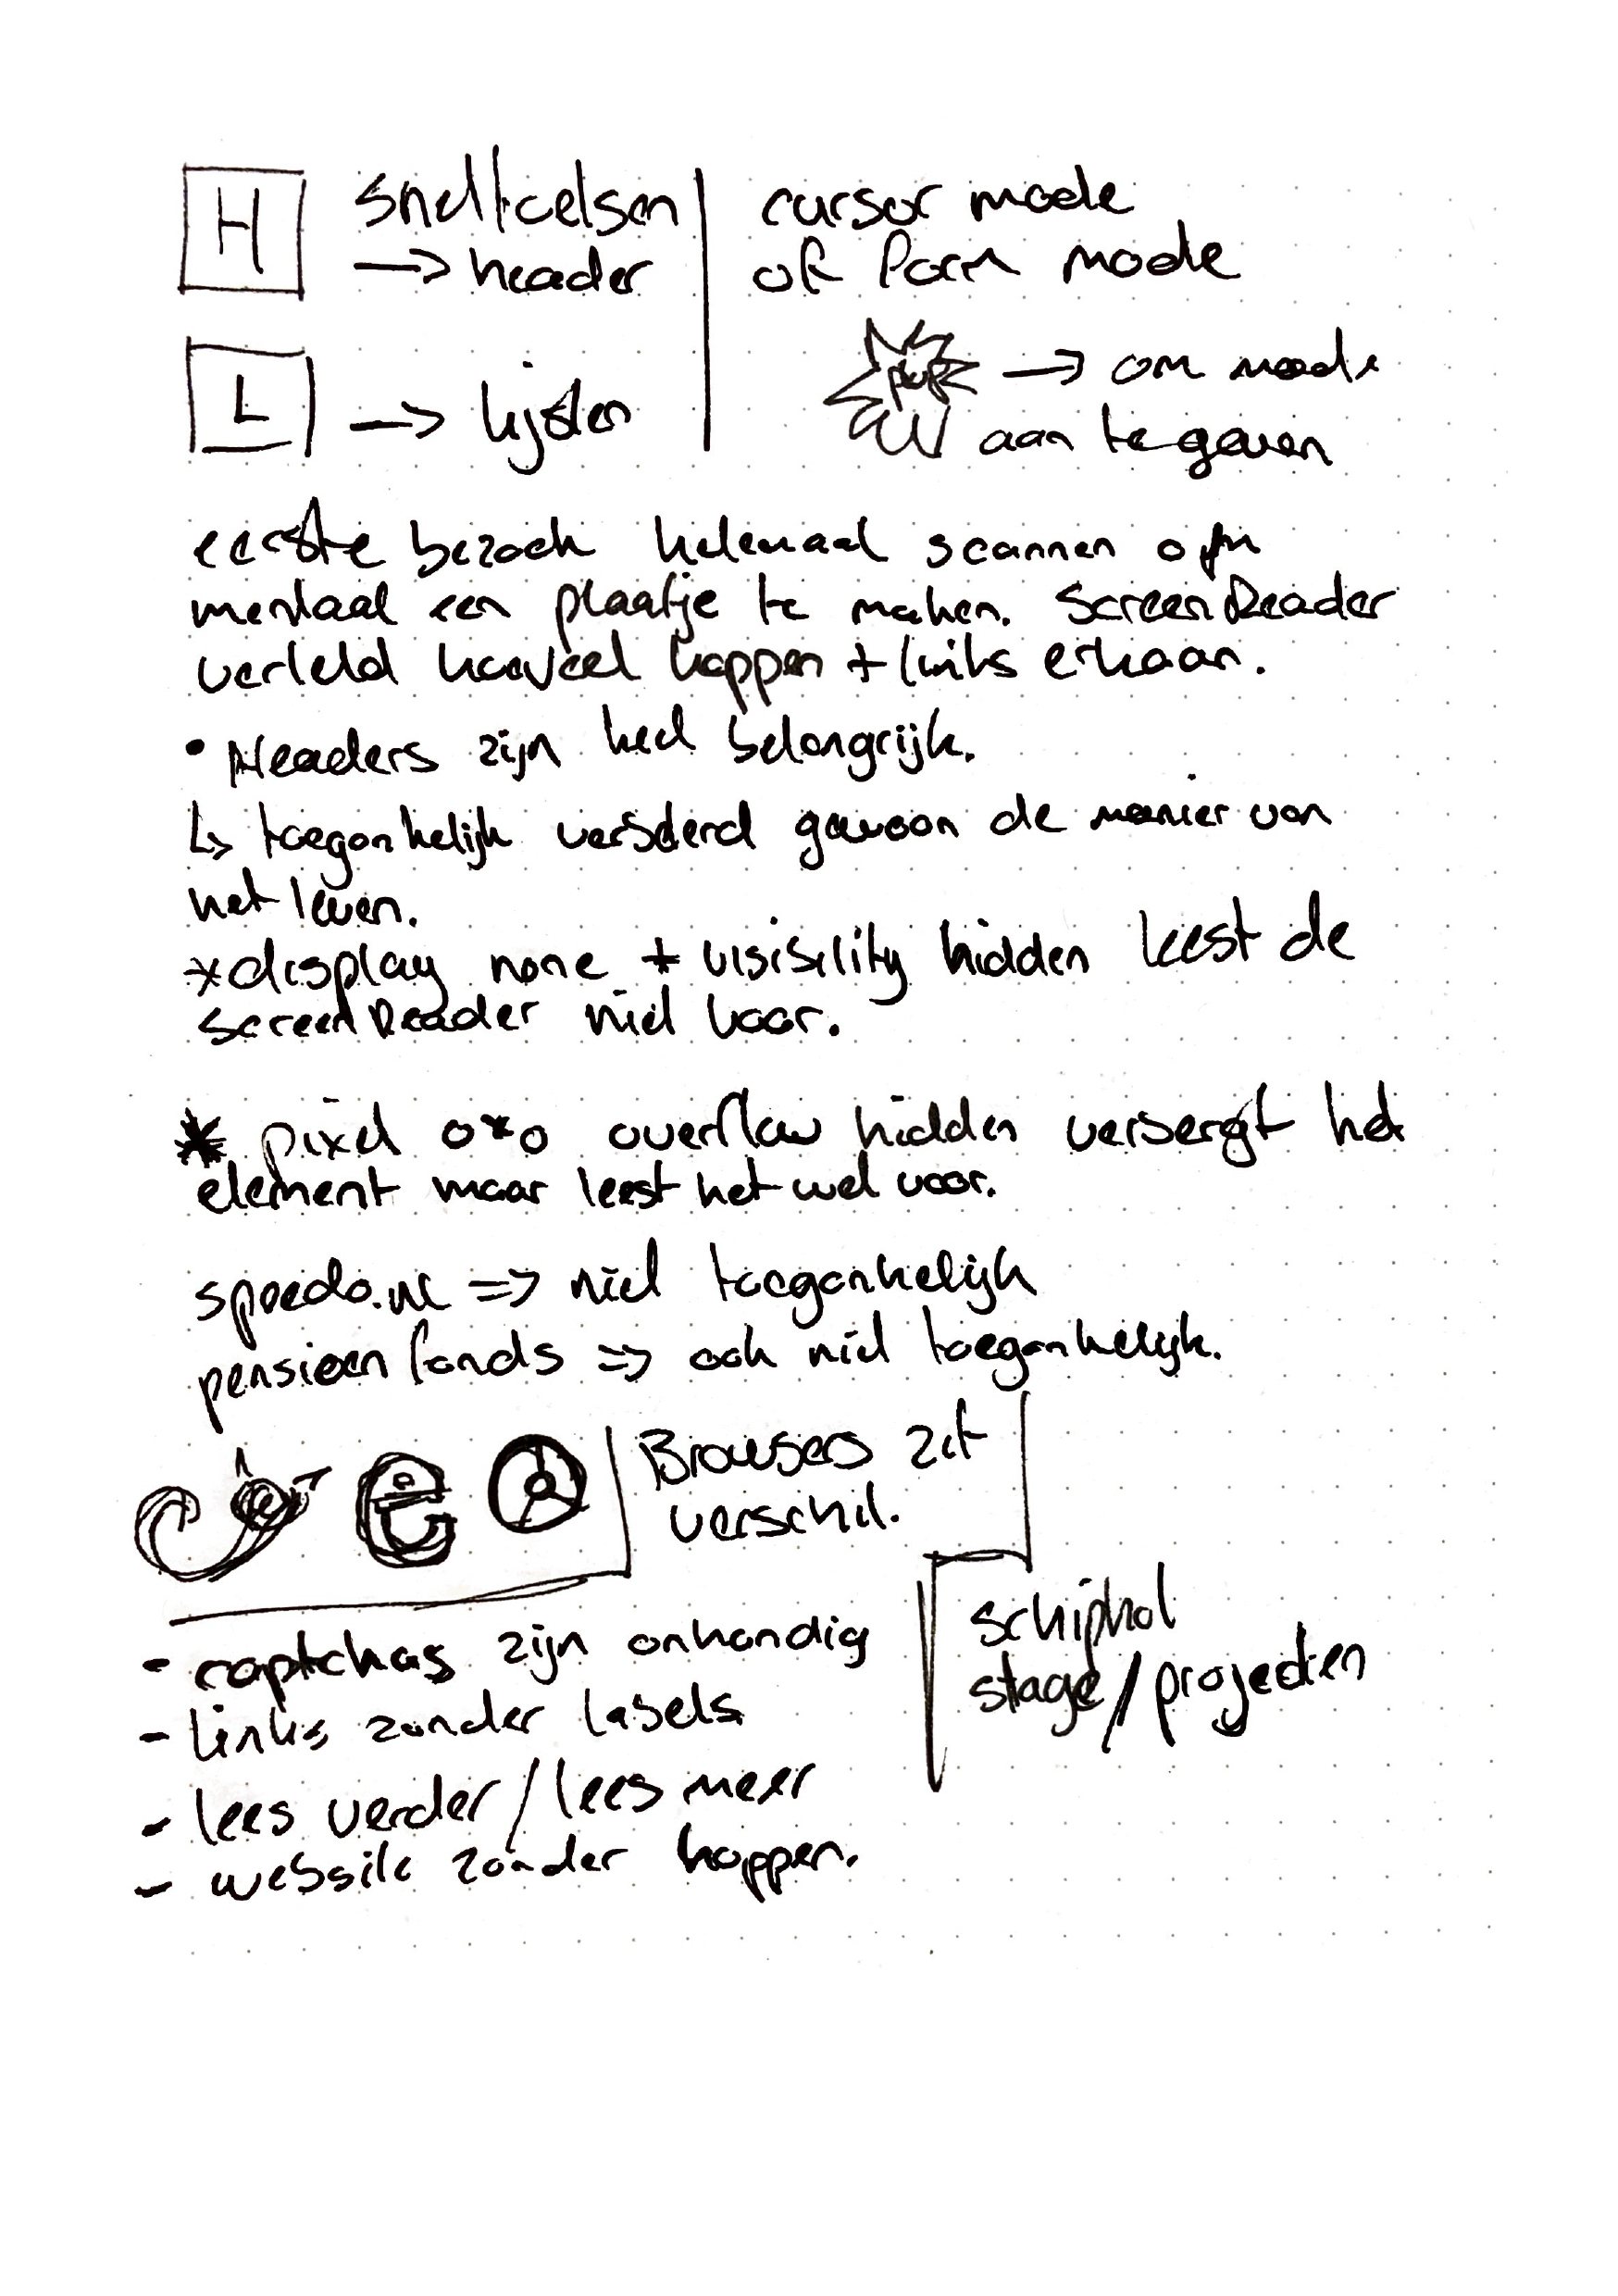 H sneltoetsen
→ header
L → lijsten
cursor mode
of form mode
plop → om mode
aan te geven
eerste bezoek helemaal scannen om
mentaal een plaatje te maken. ScreenReader
verteld hoeveel koppen + links erkaan.
• Headers zijn heel belangrijk.
↳ toegankelijk versterd gewoon de manier van
het leven.
*display none + visibility hidden leest de
screenReader niet voor.
* pixel 0*0 overflow hidden verbergt het
element maar leest het wel voor.
speedo.nl => niet toegankelijk
pensioen fonds => ook niet toegankelijk.
Browsers zit
verschil.
- captchas zijn onhandig
- links zonder labels
- lees verder / lees meer
- website zonder koppen.
schiphol
stage / projecten